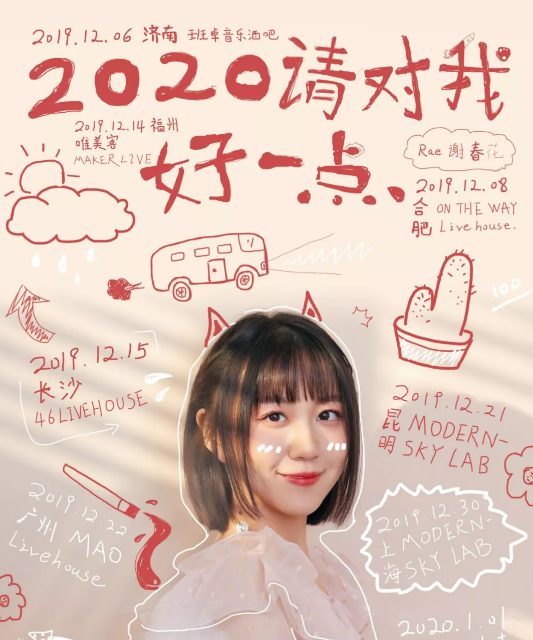 2019.12.06 济南 班卓音乐酒吧
2020请对我
好一点、
2019.12.14 福州
唯美客
MAKER LIVE
Rae 谢春花
2019.12.08
合肥 ON THE WAY
Livehouse.
100
2019.12.15
长沙
46LIVEHOUSE
2019.12.21
昆明 MODERN-
SKY LAB
2019.12.22
广州 MAO
Livehouse
2019.12.30
上海 MODERN-
SKY LAB
2020.1.01